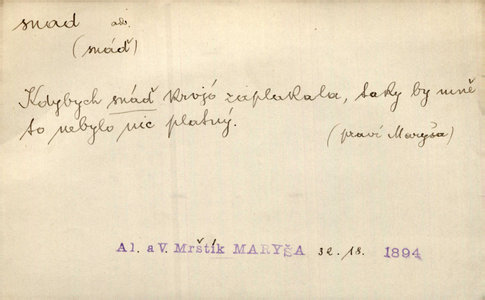 snad adv.
(snáď)
Kdybych snáď krvjó zaplakala, taky by mně
to nebylo nic platný.
(praví Maryša)
Al. a V. Mrštík MARYŠA 32.18. 1894